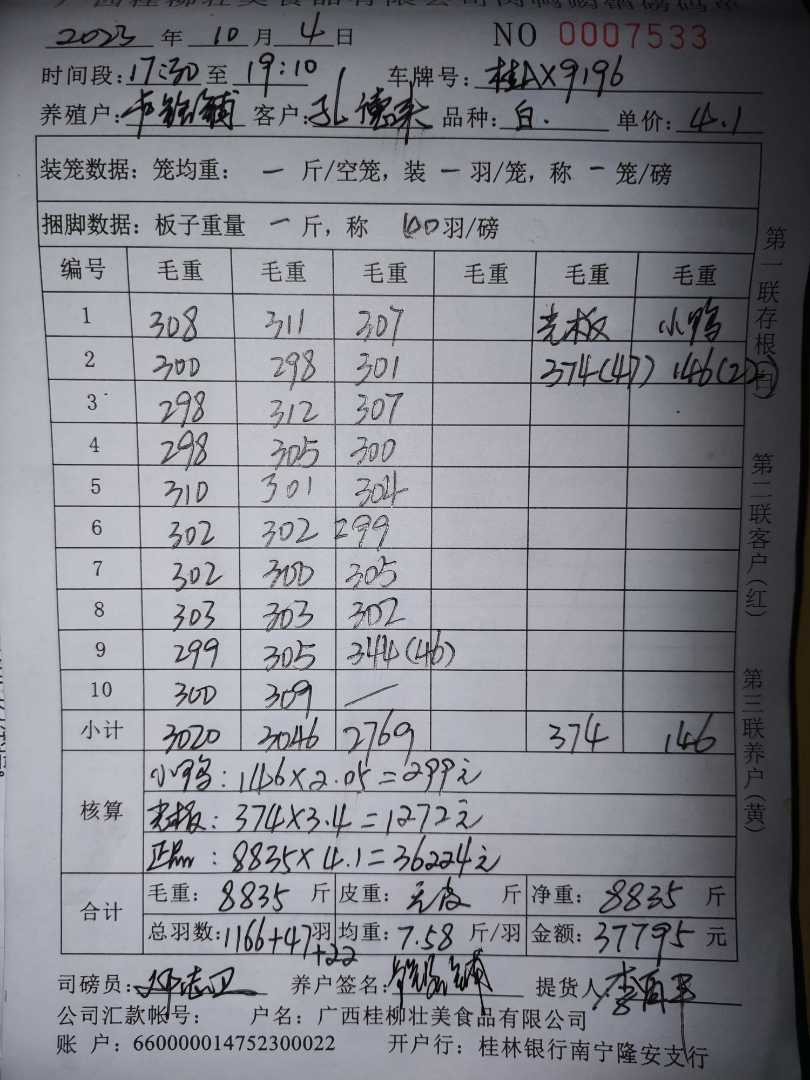 广西桂柳壮美食品有限公司肉鸭
2023 年 10 月 4 日 NO 0007533
时间段: 17:30 至 19:10 车牌号: 桂AX9196
养殖户: 客户: 孔德 品种: 白. 单价: 4.1
装笼数据: 笼均重: 一 斤/空笼, 装 一 羽/笼, 称 一 笼/磅
捆脚数据: 板子重量 一 斤, 称 100 羽/磅
编号 毛重 毛重 毛重 毛重 毛重 毛重
1 308 311 307 光板 小鸭
2 300 298 301 374(47) 146(22)
3 298 312 307
4 298 305 300
5 310 301 304
6 302 302 299
7 302 300 305
8 303 303 302
9 299 305 344(46)
10 300 309 —
小计 3020 3046 2769 374 146
核算
小鸭: 146×2.05=299元
光板: 374×3.4=1272元
正品: 8835×4.1=36224元
合计
毛重: 8835 斤 皮重: 无皮 斤 净重: 8835 斤
总羽数: 1166+47+22 羽 均重: 7.58 斤/羽 金额: 37795 元
司磅员: 养户签名: 提货人:
公司汇款帐号: 户名: 广西桂柳壮美食品有限公司
账 户: 660000014752300022 开户行: 桂林银行南宁隆安支行
第一联存根(白)
第二联客户(红)
第三联养户(黄)